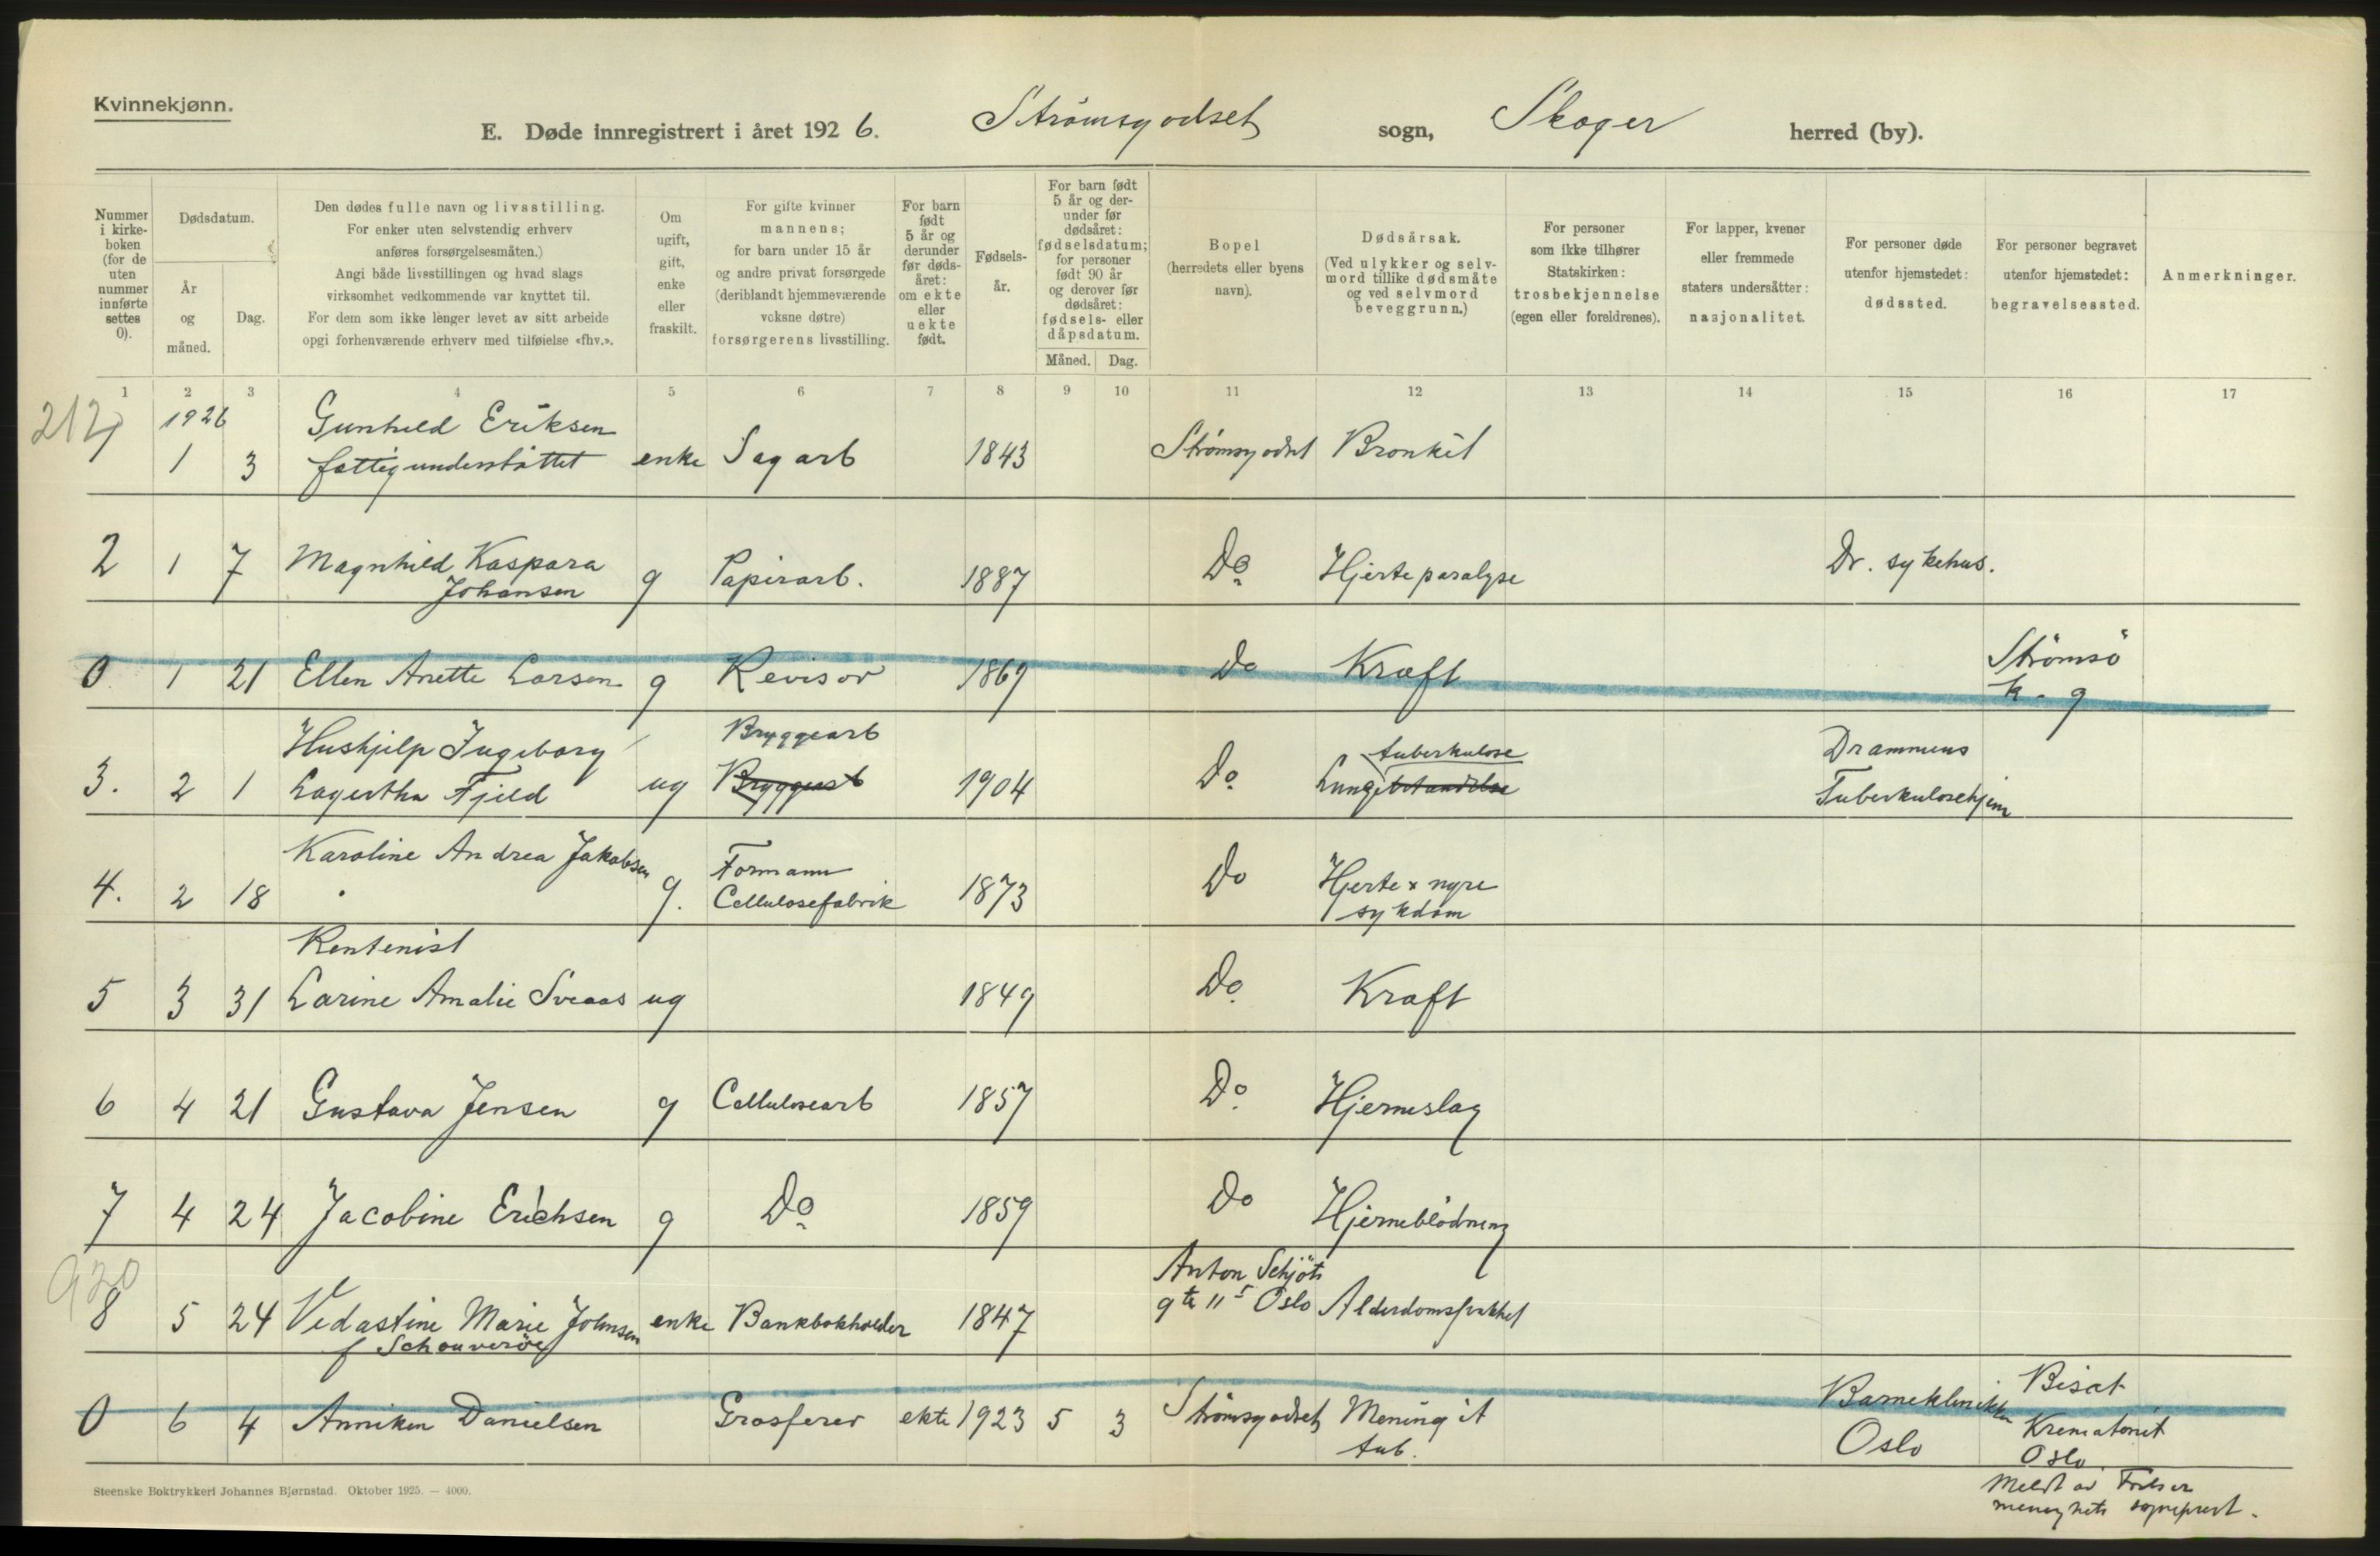 Kvinnekjønn.
E. Døde innregistrert i året 1926. Strømsgodset sogn, Skoger herred (by).
Nummer i kirkeboken (for de uten nummer innførte settes 0).
Dødsdatum.
År og måned.
Dag.
Den dødes fulle navn og livsstilling.
For enker uten selvstendig erhverv
anføres forsørgelsesmåten.)
Angi både livsstillingen og hvad slags
virksomhet vedkommende var knyttet til.
For dem som ikke lenger levet av sitt arbeide
opgi forhenværende erhverv med tilføielse «fhv.».
Om ugift, gift, enke eller fraskilt.
For gifte kvinner
mannens;
for barn under 15 år
og andre privat forsørgede
(deriblandt hjemmeværende
voksne døtre)
forsørgerens livsstilling.
For barn født 5 år og derunder før dødsåret: om ekte eller uekte født.
Fødselsår.
For barn født 5 år og derunder før dødsåret: fødselsdatum; for personer født 90 år og derover før dødsåret: fødsels- eller dåpsdatum.
Måned. Dag.
Bopel
(herredets eller byens
navn).
Dødsårsak.
(Ved ulykker og selvmord tillike dødsmåte og ved selvmord beveggrunn.)
For personer
som ikke tilhører
Statskirken:
trosbekjennelse
(egen eller foreldrenes).
For lapper, kvener
eller fremmede
staters undersåtter:
nasjonalitet.
For personer døde
utenfor hjemstedet:
dødssted.
For personer begravet
utenfor hjemstedet:
begravelsessted.
Anmerkninger.
1 2 3 4 5 6 7 8 9 10 11 12 13 14 15 16 17
212
1926 Gunhild Eriksen
1 1 3 fattigunderstøttet enke Sagarb 1843 Strømsgodset Bronkit
2 1 7 Magnhild Kaspara Johansen g Papirarb. 1887 Do Hjerteparalyse Dr. sykehus.
0 1 21 Ellen Anette Larsen g Revisor 1869 Do Kræft Strømsö k. g
Hushjelp Ingeborg Bryggearb tuberkulose Drammens
3. 2 1 Lagertha Fjeld ug Bryggearb 1904 Do Lungebetændelse Tuberkulosehjem
Karoline Andrea Jakobsen Formann
4. 2 18 g. Cellulosefabrik 1873 Do Hjerte x nyre sykdom
Rentenist
5 3 31 Larine Amalie Sveaas ug 1849 Do Kræft
6 4 21 Gustava Jensen g Cellulosearb 1857 Do Hjerneslag
7 4 24 Jacobine Erichsen g Do 1859 Do Hjerneblödning
920
Anton Schjöts
8 5 24 Vedastine Marie Johnsen enke Bankbokholder 1847 gte 11 5 Oslo Alderdomssvakhet
f
0 6 4 Anniken Danielsen Grosserer ekte 1923 5 3 Strømsgodset Meningit tub. Barneklinikken Oslo Bisat Krematoriet Oslo
Meldt av Frelser
menighets sogneprest.
Steenske Boktrykkeri Johannes Bjørnstad. Oktober 1925. — 4000.